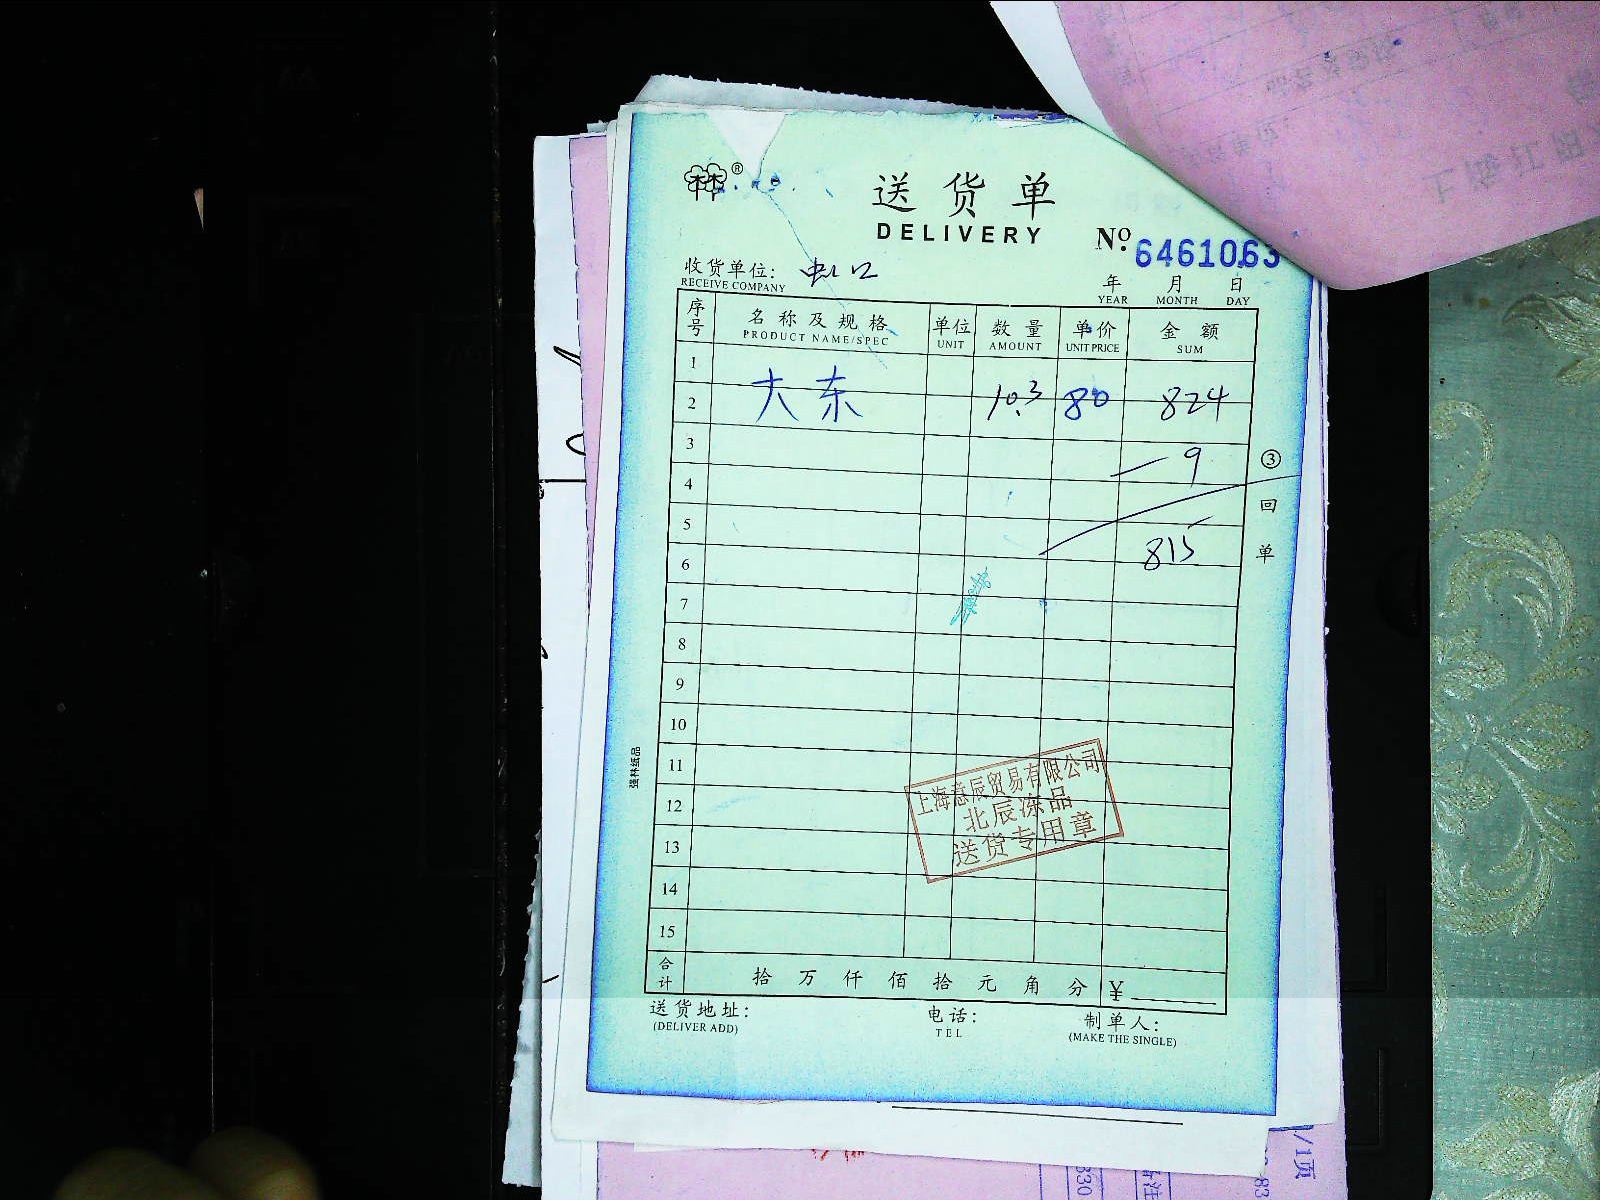 林®
送货单
DELIVERY
No. 6461063
收货单位: 虹口
RECEIVE COMPANY
年 月 日
YEAR MONTH DAY
序号 名称及规格 单位 数量 单价 金额
PRODUCT NAME/SPEC UNIT AMOUNT UNIT PRICE SUM
1
2 大东 10.3 80 824
3 — 9
4
5
6 815
7
8
9
10
11
12
13
14
15
上海意辰贸易有限公司
北辰冻品
送货专用章
③回单
强林纸品
合计 拾 万 仟 佰 拾 元 角 分 ¥
送货地址: 电话: 制单人:
(DELIVER ADD) TEL (MAKE THE SINGLE)
/1页